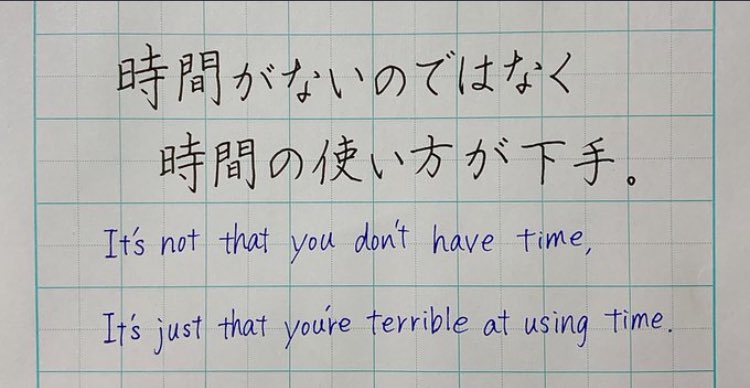 時間がないのではなく
時間の使い方が下手。
It's not that you don't have time,
It's just that you're terrible at using time.